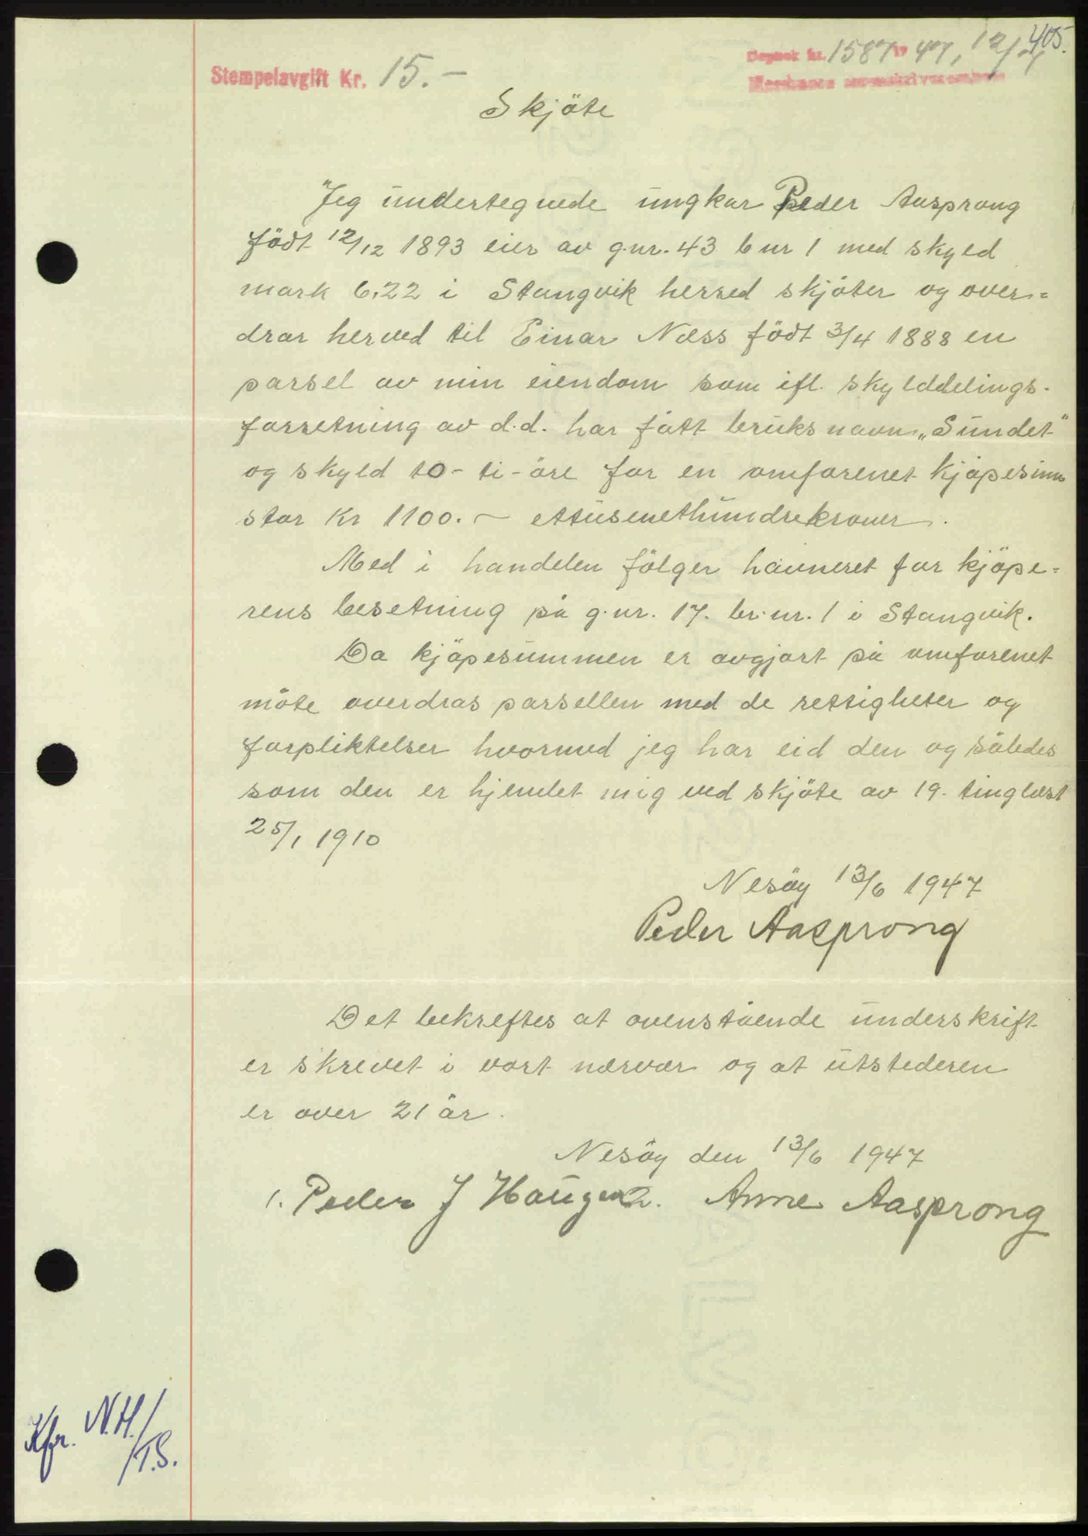 405.
Stempelavgift Kr. 15.-
Dagbok nr. 1587 19 47, 12/7
Nordmøre sorenskriverembete
Skjöte
Jeg undertegnede ungkar Peder Aasprong
født 12/12 1893 eier av g.nr. 43 bnr 1 med skyld
mark 6,22 i Stangvik herred skjöter og over=
drar herved til Einar Næss födt 3/4 1888 en
parsel av min eiendom som ifl. skylddelings-
forretning av d.d. har fått bruksnavn „Sundet"
og skyld 10- ti- öre for en omforenet kjöpesum
stor Kr 1100.- ettusenethundrekroner.
Med i handelen fölger havneret for kjöpe=
rens besetning på g.nr. 17. br.nr. 1 i Stangvik.
Da kjöpesummen er avgjort på omforenet
måte overdras parsellen med de rettigheter og
forpliktelser hvormed jeg har eid den og således
som den er hjemlet mig ved skjöte av 19. tinglæst
25/1 1910
Nesöy 13/6 1947
Peder Aasprong
Det bekreftes at ovenstående underskrift
er skrevet i vort nærvær og at utstederen
er over 21 år.
Nesöy den 13/6 1947
1. Peder J Haugen 2. Anne Aasprong
Kfr. N.H./
/T.S.